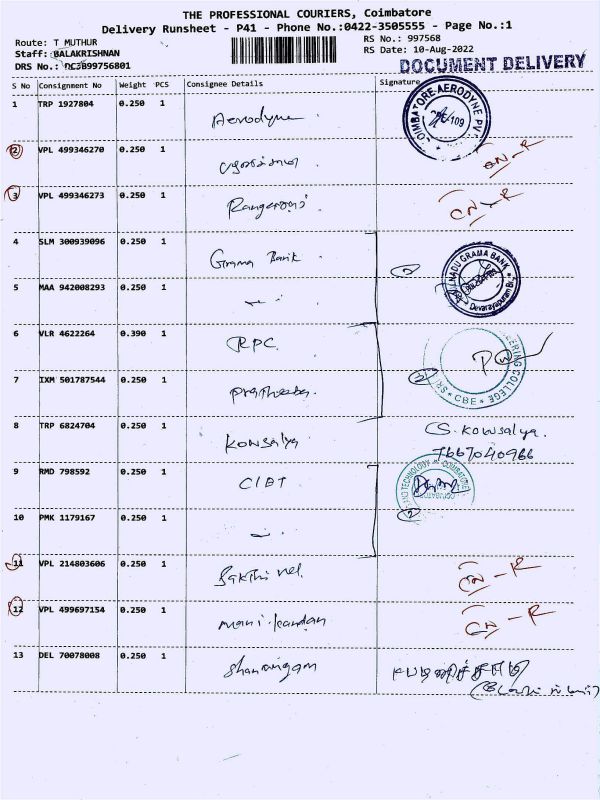 THE PROFESSIONAL COURIERS, Coimbatore
Delivery Runsheet - P41 - Phone No.:0422-3505555 - Page No.:1
Route: T_MUTHUR
RS No.: 997568
Staff: BALAKRISHNAN
RS Date: 10-Aug-2022
DRS No.:
DOCUMENT DELIVERY
S No Consignment No Weight PCS Consignee Details Signature
1 TRP 1927804 0.250 1 Aerodyne
COIMBATORE AERODYNE PV
2 VPL 499346270 0.250 1
CN-R
3 VPL 499346273 0.250 1
CN-R
4 SLM 300939096 0.250 1 Grama Bank
NADU GRAMA BANK
Devarayapuram Br.
5 MAA 942008293 0.250 1
6 VLR 4622264 0.390 1 RPC
ERING COLLEGE
* CBE *
7 IXM 501787544 0.250 1
8 TRP 6824704 0.250 1 Kowsalya
CS. Kowsalya.
7667040966
9 RMD 798592 0.250 1 CIET
10 PMK 1179167 0.250 1
11 VPL 214803606 0.250 1 Sakthivel.
CN-R
12 VPL 499697154 0.250 1 Manikandan
CN-R
13 DEL 70078008 0.250 1 Shanmugam